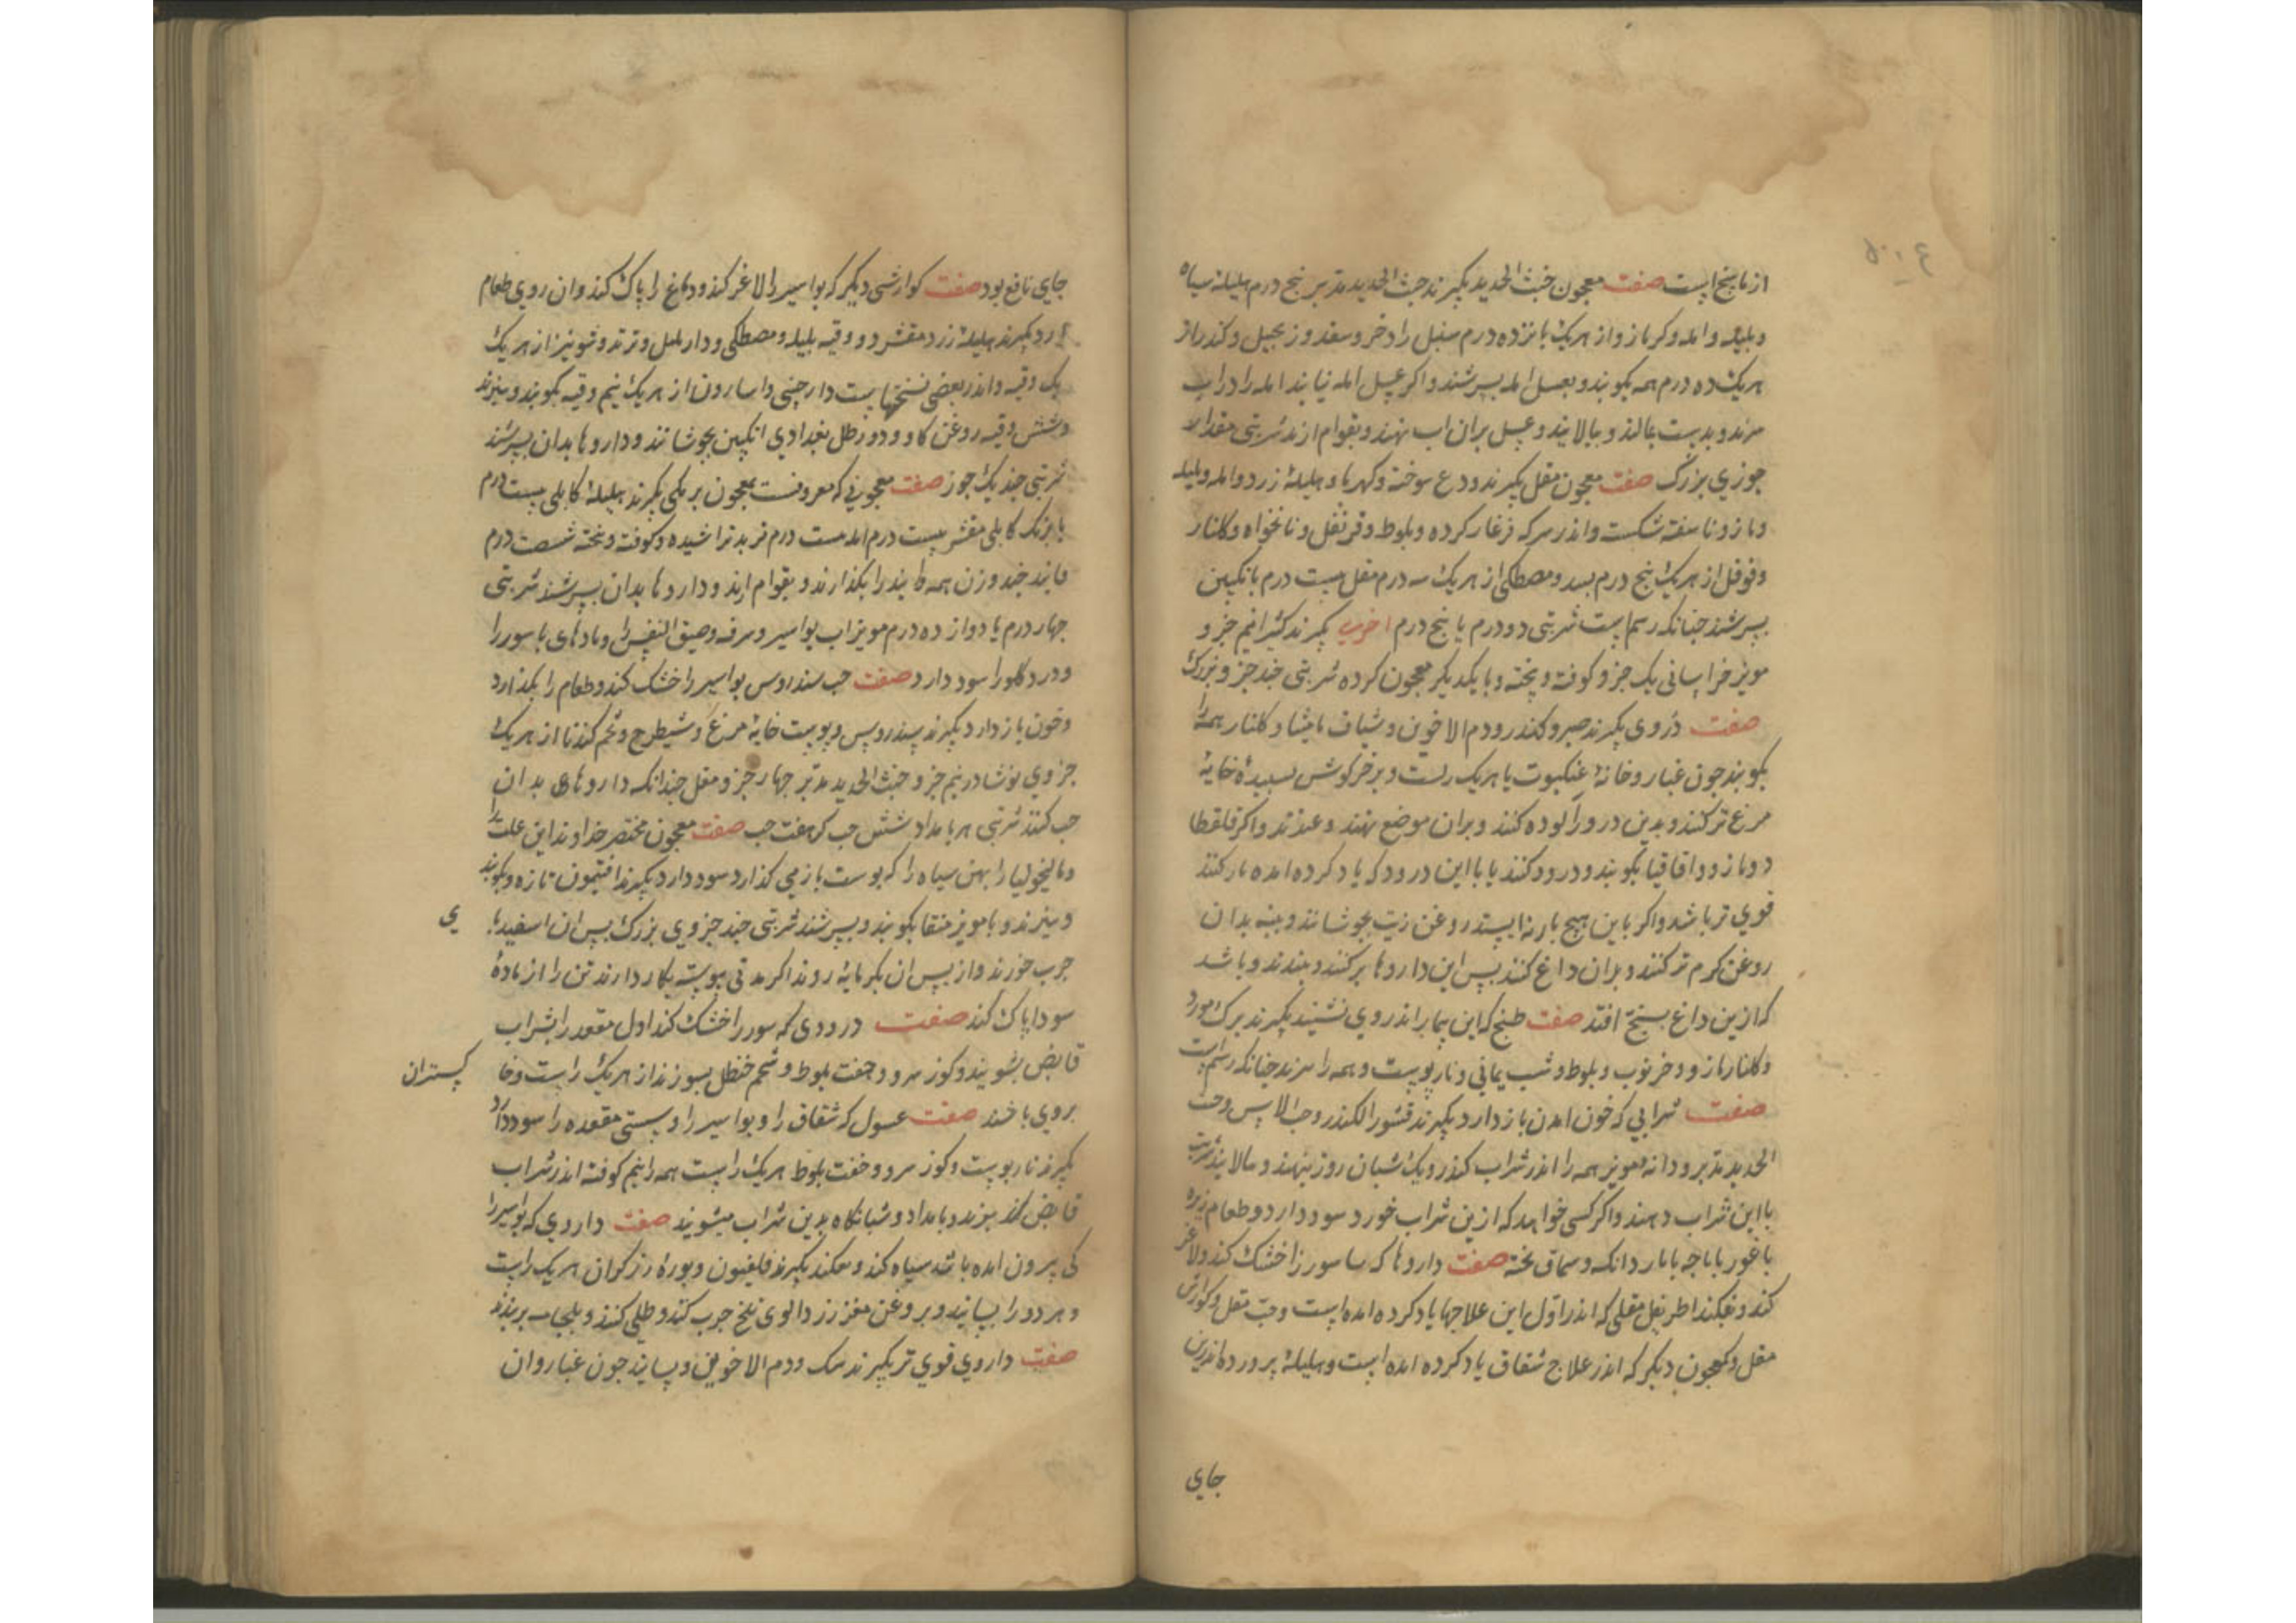 از ناسخ است صفت معجون خبث الحدید بکیرند خبث الحدید مدبر پنج درم هلیلهٔ سیاه
و بلیله و امله و کرمازو از هریک پانزده درم سنبل و اذخر و سعد و زنجبیل و کندر از
هریک ده درم همه بکوبند و بعسل امله بسرشند و اکر عسل امله نیابند امله را در اب
بپزند و بدست بمالند و ببالایند و عسل بران اب نهند و بقوام ارند شربتی مقدار
جوزی بزرک صفت معجون مقل بکیرند ودع سوخته و کهربا و هلیلهٔ زرد و امله و بلیله
و مازو ناسفته شکسته و اندر سرکه فرغار کرده و بلوط و قرنفل و نانخواه و کلنار
و فوفل از هریک پنج درم بسد و مصطکی از هریک سه درم مقل بیست درم بانکبین
بسرشند چنانکه رسم است شربتی دو درم یا پنج درم اخری بکیرند کثیرا نیم جزو
مویز خراسانی یک جزو کوفته و پخته و با یکدیکر معجون کرده شربتی چند جوز بزرک
صفت ذروری بکیرند صبر و کندر و دم الاخوین و شیاف مامیثا و کلنار همه را
بکوبند چون غبار و خانهٔ عنکبوت با هریک راست و بز خرکوش بسپیدهٔ خایهٔ
مرغ تر کنند و بدین درور الوده کنند و بران موضع نهند و ببندند و اکر قلقطار
و مازو و اقاقیا بکوبند و درود کنند یا با این درود که یاد کرده امده یار کنند
قوی تر باشد و اکر باین هیچ باز نه ایستد روغن زیت بجوشانند و پنبه بدان
روغن کرم تر کنند و بدان داغ کنند پس این داروها برکنند و ببندند و باشد
که ازین داغ بسنج افتد صفت طبخ که این بیمار اندر وی نشیند بکیرند برک مورد
و کلنار مازو و خرنوب و بلوط و شب یمانی و نارپوست و همه را بپزند چنانکه رسم است
صفت شرابی که خون امدن باز دارد بکیرند قشور الکندر و حب الاس و خبث
الحدید مدبر و دانه مویز همه را اندر شراب کنند و یک شبان روز بنهند و ببالایند شربت
با این شراب دهند و اکر کسی خواهد که ازین شراب خورد سود دارد و طعام زیره
با غوربا باجه با ناردانک و سماق پخته صفت داروها که باسور را خشک کند و لاغر
کند و بفکند اطریفل مقلی که اندر اول این علاجها یاد کرده امده است و حب مقل و کوارش
مقل و معجون دیکر که اندر علاج شقاق یاد کرده امده است و هلیلهٔ پرورده اندرین
جای
جای نافع بود صفت کوارشی دیکر که بواسیر را لاغر کند و دماغ را پاک کند و ان روی طعام
ارد بکیرند هلیلهٔ زرد مقشر دو وقیه بلیله و مصطکی و دار بلبل و تربد و شونیز از هریک
یک وقیه و اندر بعضی نسختها است دارچینی و اسارون از هریک نیم وقیه بکوبند و ببیزند
و شش وقیه روغن کاو و دو رطل بغدادی انکبین بجوشانند و داروها بدان بسرشند
شربتی چند یک جوز صفت معجونی که معروفست بمعجون برمکی بکیرند هلیلهٔ کابلی بیست درم
با برنک کابلی مقشر بیست درم امله بیست درم تربد تراشیده و کوفته و پخته شصت درم
فانید چند وزن همه فانید را بکذارند و بقوام ارند و داروها بدان بسرشند شربتی
چهار درم یا دوازده درم مویز اب بواسیر و سرفه و ضیق النفس را و بادهای باسور را
و درد کلو را سود دارد صفت حب سندروس بواسیر را خشک کند و طعام را بکذارد
و خون باز دارد بکیرند سندروس و پوست خایهٔ مرغ و شیطرج و تخم کندنا از هریک
جزوی نوشادر نیم جزو خبث الحدید مدبر چهار جزو مقل چندانکه داروهای بدان
حب کنند شربتی هر بامداد شش حب که هفت حب صفت معجون مختصر خداوند این علت را
و مالیخولیا را بهق سیاه را که پوست باز می کذارد سود دارد بکیرند افتیمون تازه و بکوبند
و ببیزند و با مویز منقا بکوبند و بسرشند شربتی چند جزوی بزرک پس ان اسفیدبا
ی
چرب خورند و از پس ان بکرمابه روند اکر مدتی پیوسته بکار دارند تن را از مادهٔ
سودا پاک کند صفت دروری که سور را خشک کند اول مقعد را بشراب
قابض بشویند و کوز سرو و جفت بلوط و شحم حنظل بسوزند از هریک راست و خا
کستران
بروی باشند صفت غسول که شقاق را و بواسیر را و سستی مقعده را سود دارد
بکیرند نارپوست و کوز سرو و جفت بلوط هریک راست همه را نیم کوفته اندر شراب
قابض کنند بپزند و بامداد و شبانکاه بدین شراب میشویند صفت داروی که بواسیر را
کی بیرون امده باشد سیاه کند و بفکند بکیرند قلفیون و بورهٔ زرکران هریک راست
و هر دو را بسایند و بروغن مغز زردالوی تلخ چرب کنند و طلی کنند و بلجام بربندند
صفت داروی قوی تر بکیرند سک و دم الاخوین و بسایند چون غبار و ان